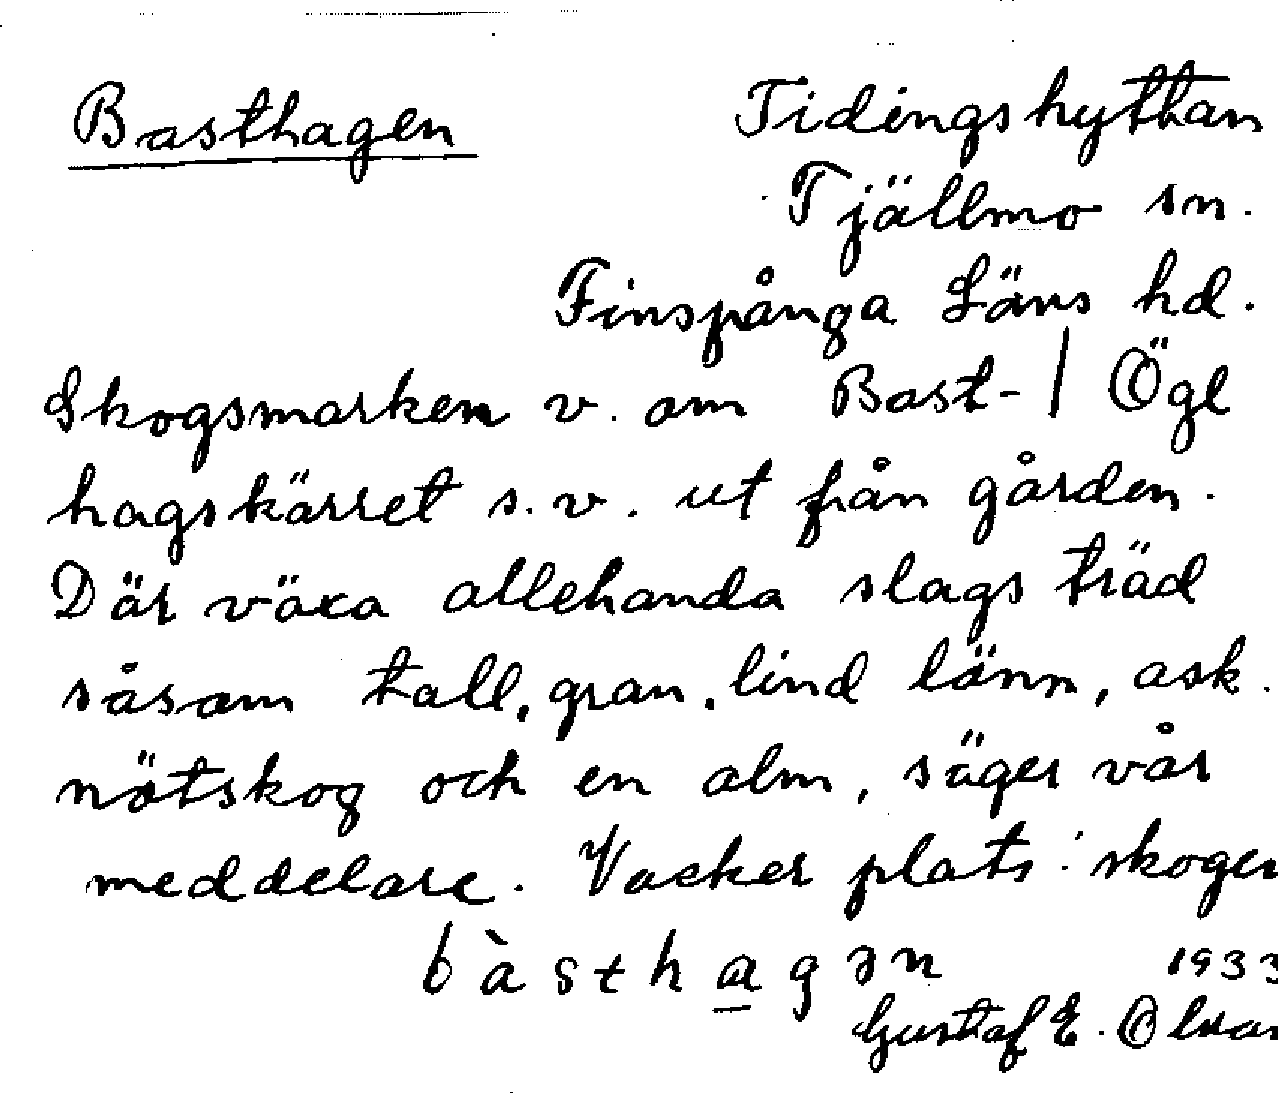 Basthagen Tidingshyttan
Tjällmo sn.
Finspånga Läns hd.
Skogsmarken v. om Bast- | Ögl
hagskärret s.v. ut från gården.
Där växa allehanda slags träd
såsom tall, gran, lind lönn, ask.
nötskog och en alm, säger vår
meddelare. Vacker plats i skogen
bàsthagən 1933
Gustaf E. Olsson